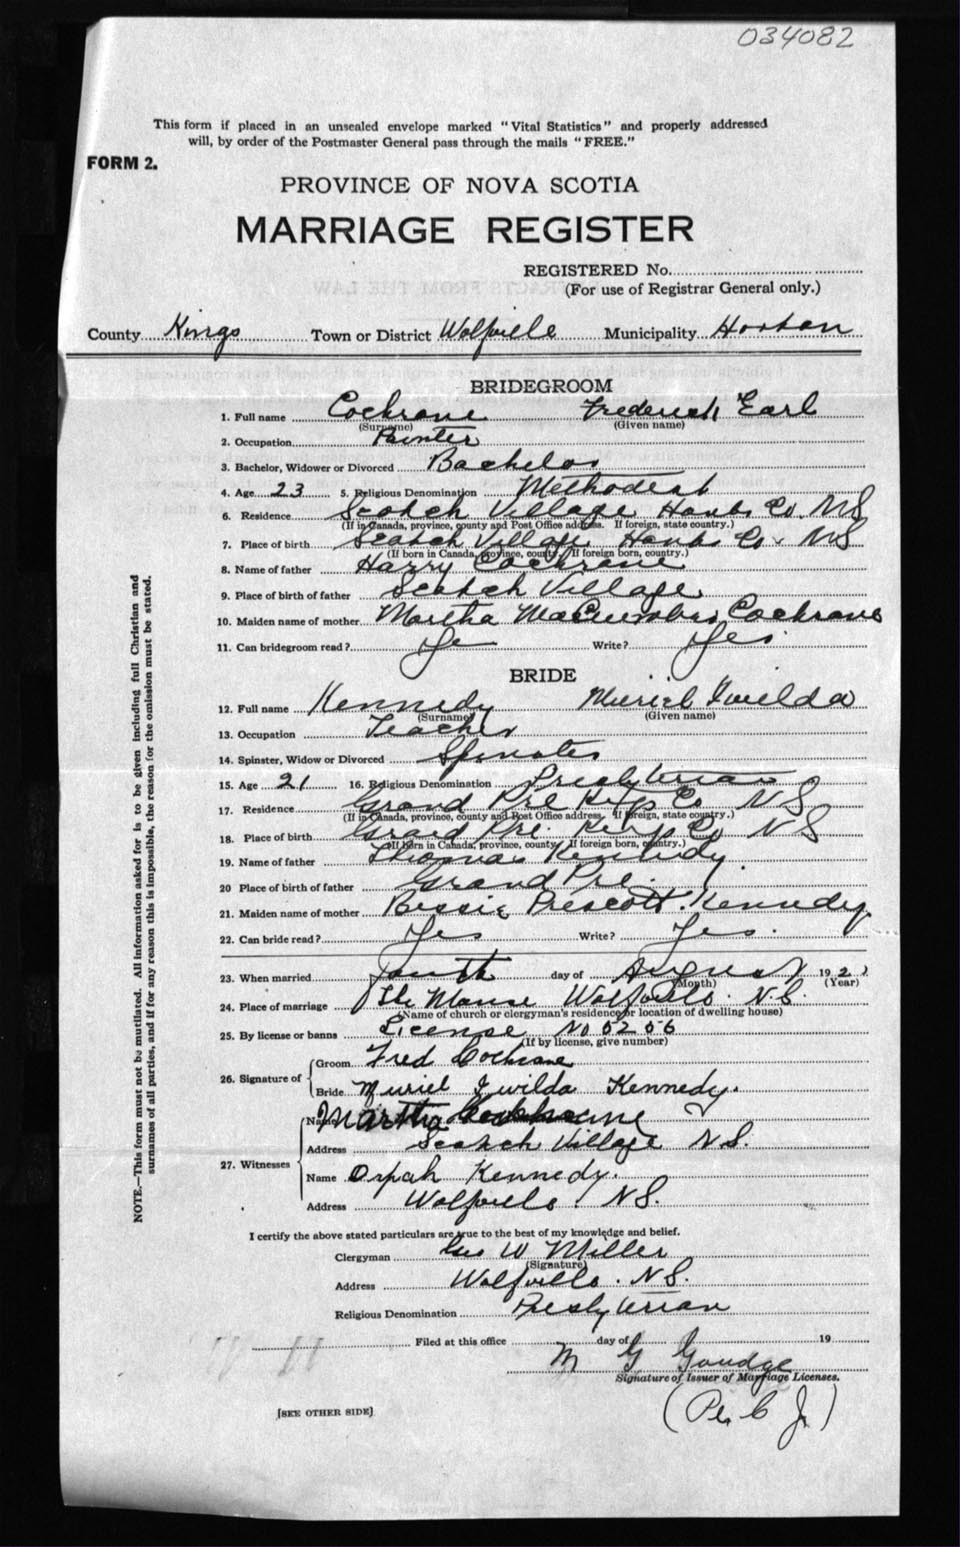 034082
This form if placed in an unsealed envelope marked "Vital Statistics" and properly addressed
will, by order of the Postmaster General pass through the mails "FREE."
FORM 2.
PROVINCE OF NOVA SCOTIA
MARRIAGE REGISTER
REGISTERED No.
(For use of Registrar General only.)
County Kings Town or District Wolfville Municipality Horton
BRIDEGROOM
1. Full name Cochrane Frederick Earl
(Surname) (Given name)
2. Occupation Painter
3. Bachelor, Widower or Divorced Bachelor
4. Age 23 5. Religious Denomination Methodist
6. Residence Scotch Village Hants Co. NS
(If in Canada, province, county and Post Office address. If foreign, state country.)
7. Place of birth Scotch Village Hants Co. NS
(If born in Canada, province, county. If foreign born, country.)
8. Name of father Harry Cochrane
9. Place of birth of father Scotch Village
10. Maiden name of mother Martha Cochrane
11. Can bridegroom read? Ye Write? Yes.
BRIDE
12. Full name Kennedy Muriel Iwilda
(Surname) (Given name)
13. Occupation Teacher
14. Spinster, Widow or Divorced Spinster
15. Age 21 16. Religious Denomination Presbyterian
17. Residence Grand Pre Kings Co NS
(If in Canada, province, county and Post Office address. If foreign, state country.)
18. Place of birth Grand Pre. Kings Co NS
(If born in Canada, province, county. If foreign born, country.)
19. Name of father Thomas Kennedy.
20 Place of birth of father Grand Pre.
21. Maiden name of mother Bessie Prescott Kennedy.
22. Can bride read? Yes Write? Yes.
23. When married Tenth day of August 192
(Month) (Year)
24. Place of marriage The Manse Wolfville. N.S.
(Name of church or clergyman's residence or location of dwelling house)
25. By license or banns License No 5256
(If by license, give number)
26. Signature of Groom Fred Cochrane
Bride Muriel Iwilda Kennedy.
27. Witnesses Name Martha Cochrane
Address Scotch Village N.S.
Name Orpah Kennedy.
Address Wolfville. N.S.
I certify the above stated particulars are true to the best of my knowledge and belief.
Clergyman Geo W Miller
(Signature)
Address Wolfville. N.S.
Religious Denomination Presbyterian
Filed at this office day of 19
M G Goudge
Signature of Issuer of Marriage Licenses.
[SEE OTHER SIDE]
NOTE.—This form must not be mutilated. All information asked for is to be given including full Christian and
surnames of all parties, and if for any reason this is impossible, the reason for the omission must be stated.